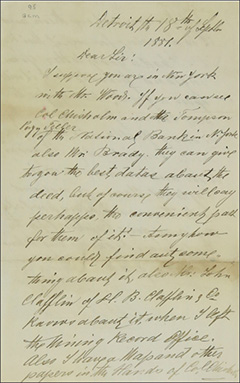 Detroit, th 18th of Septbr
1881.
Dear Sir!
I suppose you are in New York
with Mr. Woods. If you can see
Col Chisholm and the
of the National Bank in N. York
also Mr. Brady, they can give
to you the best datas about the
deed, but of course they will say
perhapps the convenient part
for them of it. – Somehow
you could find out some-
thing about it, also Mr. John
Clafflin of H. B. Clafflin & Co
knows about it when I left
the Mining Record Office.
Also I have Mss and other
papers in the Hands of Col. Chisholm